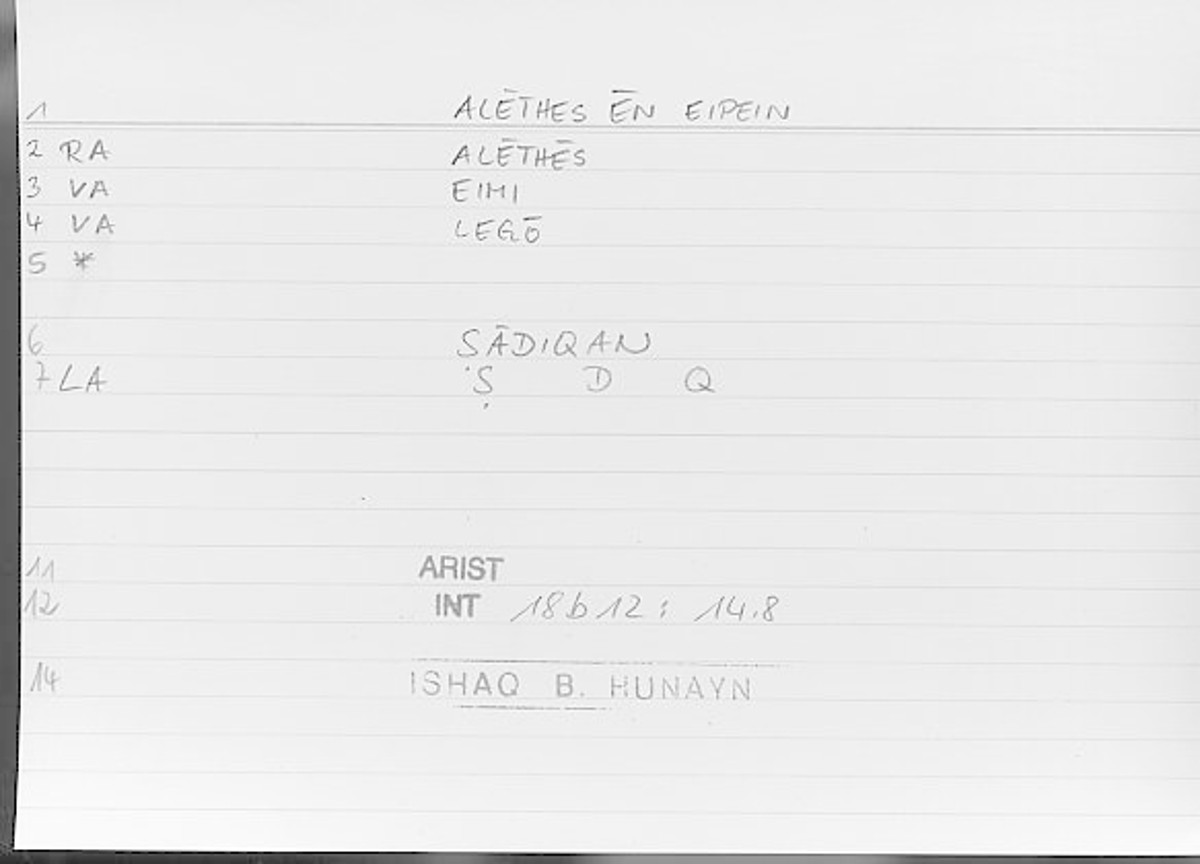 1 ALĒTHES ĒN EIPEIN
2 RA ALĒTHĒS
3 VA EIMI
4 VA LEGŌ
5 *
6 SĀDIQAN
7 LA Ṣ D Q
11 ARIST
12 INT 18b12: 14.8
14 ISHAQ B. HUNAYN